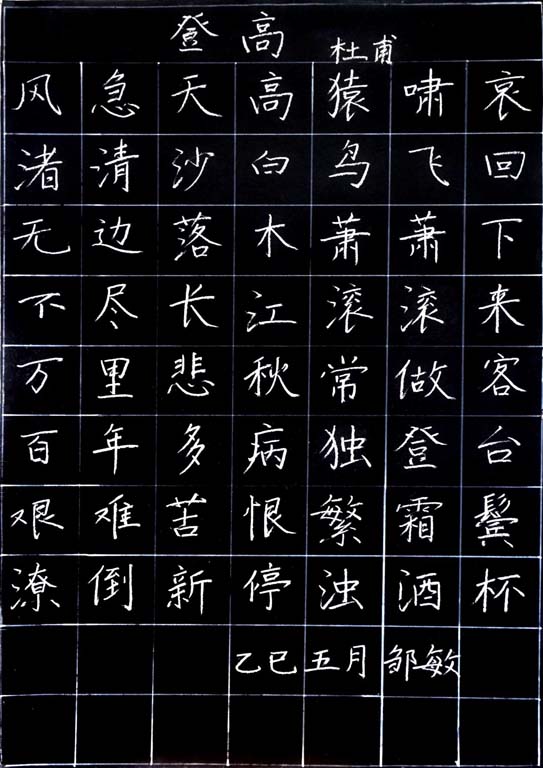 登高
杜甫
风急天高猿啸哀
渚清沙白鸟飞回
无边落木萧萧下
不尽长江滚滚来
万里悲秋常做客
百年多病独登台
艰难苦恨繁霜鬓
潦倒新停浊酒杯
乙巳五月邹敏